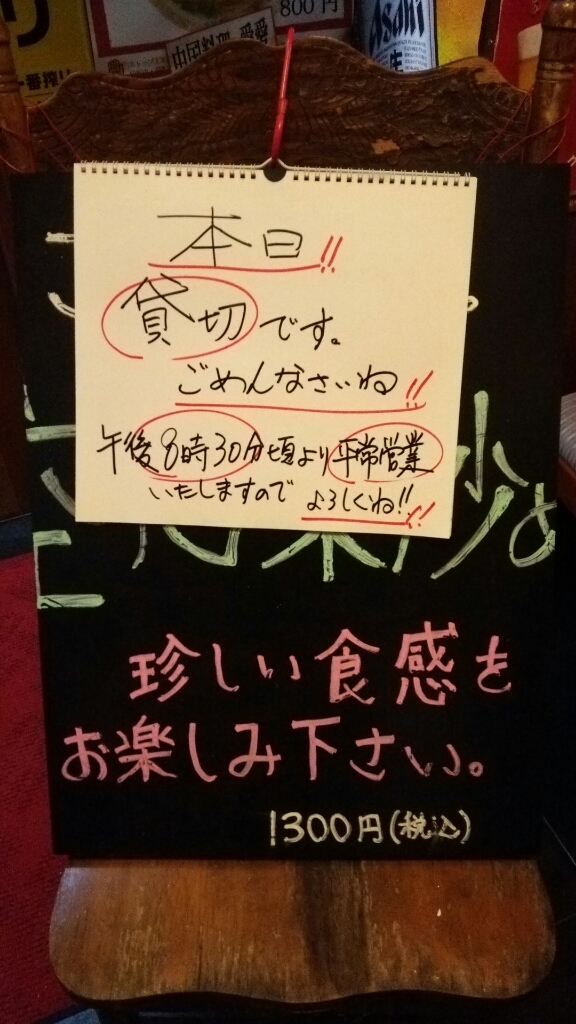 800円
中国料理 愛愛
Asahi
生
一番搾り
本日!!
貸切です。
ごめんなさいね!!
午後8時30分頃より平常営業
いたしますので よろしくね!!
珍しい食感を
お楽しみ下さい。
1300円(税込)